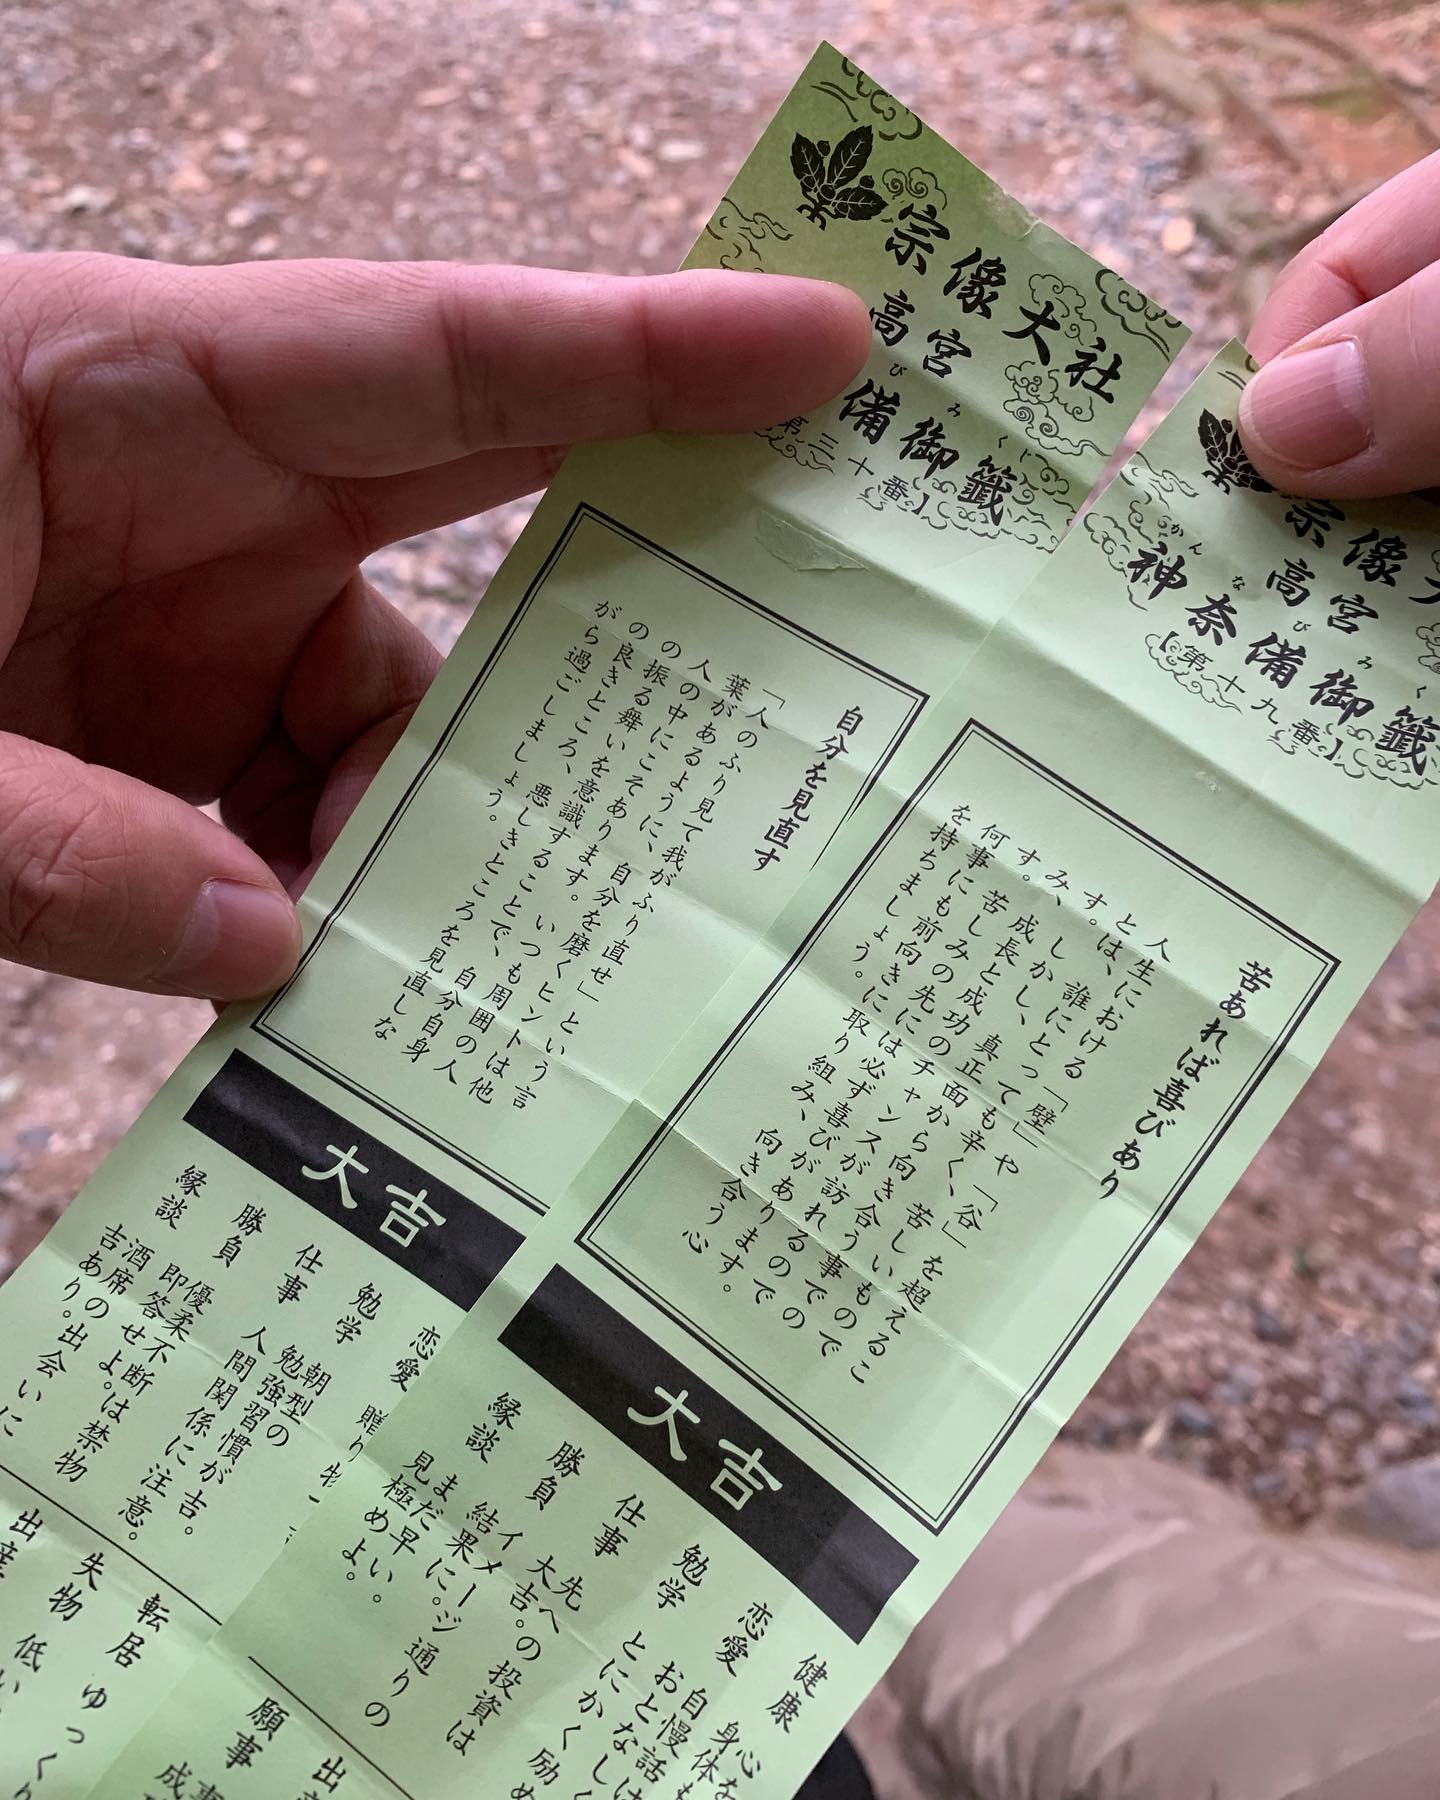 宗像大社
高宮
備御籤
び
みくじ
第三十番】
自分を見直す
「人のふり見て我がふり直せ」という言
葉があるように、自分を磨くヒントは他
人の中にこそあります。いつも周囲の人
の振る舞いを意識することで、自分自身
の良きところ、悪しきところを見直しな
がら過ごしましょう。
大吉
恋愛 贈り物
勉学 朝型の
勉強習慣が吉。
仕事 人間関係に注意。
勝負 優柔不断は禁物
即答せよ。
縁談 酒席の出会いに
吉あり。
転居 ゆっくり
失物 低い
出産
宗像
高宮
神奈備御籤
かんなび
みく
【第十九番】
苦あれば喜びあり
人生における「壁」や「谷」を超えるこ
とは、誰にとっても辛く、苦しいもので
す。しかし、真正面から向き合う事での
み、成長と成功のチャンスが訪れるので
す。苦しみの先には必ず喜びがありますので
何事にも前向きに取り組み、向き合う心
を持ちましょう。
大吉
健康 心を
身体も
恋愛 自慢話は
おとなしく
勉学 とにかく励め
仕事 先への投資は
大吉。
勝負 イメージ通りの
結果に。
縁談 まだ早い。
見極めよ。
出
願事
成